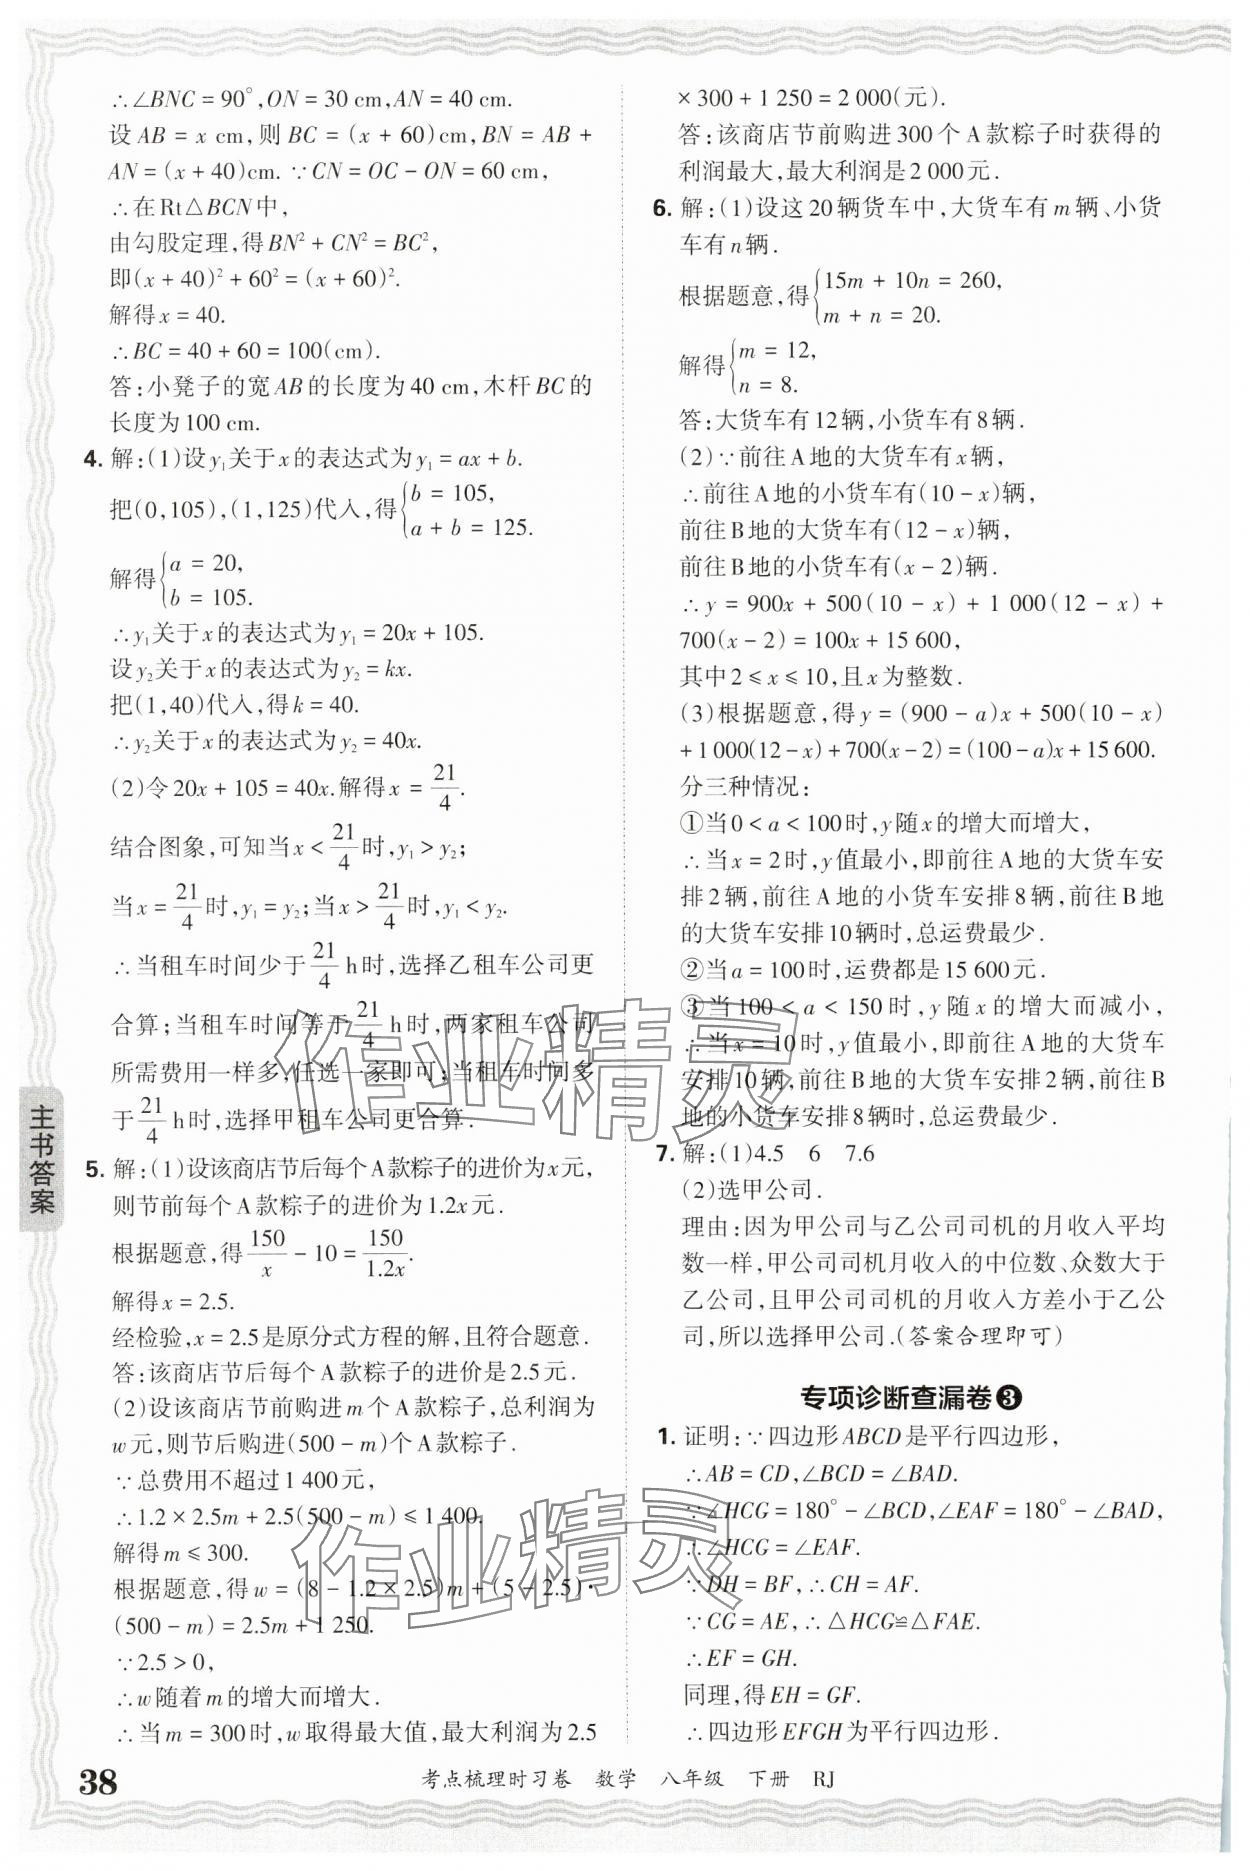 ∴∠BNC = 90°,ON = 30 cm,AN = 40 cm.
设 AB = x cm,则 BC = (x + 60)cm,BN = AB +
AN = (x + 40)cm. ∵CN = OC - ON = 60 cm,
∴在 Rt△BCN中,
由勾股定理,得BN² + CN² = BC²,
即(x + 40)² + 60² = (x + 60)².
解得x = 40.
∴BC = 40 + 60 = 100(cm).
答:小凳子的宽AB的长度为40 cm,木杆BC的
长度为100 cm.
4. 解:(1)设y₁关于x的表达式为y₁ = ax + b.
把(0,105),(1,125)代入,得{b = 105,
a + b = 125.
解得{a = 20,
b = 105.
∴y₁关于x的表达式为y₁ = 20x + 105.
设y₂关于x的表达式为y₂ = kx.
把(1,40)代入,得k = 40.
∴y₂关于x的表达式为y₂ = 40x.
(2)令20x + 105 = 40x.解得x = 21/4.
结合图象,可知当x < 21/4时,y₁ > y₂;
当x = 21/4时,y₁ = y₂;当x > 21/4时,y₁ < y₂.
∴当租车时间少于21/4 h时,选择乙租车公司更
合算;当租车时间等于21/4 h时,两家租车公司
所需费用一样多,任选一家即可;当租车时间多
于21/4 h时,选择甲租车公司更合算.
5. 解:(1)设该商店节后每个A款粽子的进价为x元,
则节前每个A款粽子的进价为1.2x元.
根据题意,得150/x - 10 = 150/1.2x.
解得x = 2.5.
经检验,x = 2.5是原分式方程的解,且符合题意.
答:该商店节后每个A款粽子的进价是2.5元.
(2)设该商店节前购进m个A款粽子,总利润为
w元,则节后购进(500 - m)个A款粽子.
∵总费用不超过1 400元,
∴1.2 × 2.5m + 2.5(500 - m) ≤ 1 400.
解得m ≤ 300.
根据题意,得w = (8 - 1.2 × 2.5)m + (5 - 2.5)·
(500 - m) = 2.5m + 1 250.
∵2.5 > 0,
∴w随着m的增大而增大.
∴当m = 300时,w取得最大值,最大利润为2.5
× 300 + 1 250 = 2 000(元).
答:该商店节前购进300个A款粽子时获得的
利润最大,最大利润是2 000元.
6. 解:(1)设这20辆货车中,大货车有m辆、小货
车有n辆.
根据题意,得{15m + 10n = 260,
m + n = 20.
解得{m = 12,
n = 8.
答:大货车有12辆,小货车有8辆.
(2)∵前往A地的大货车有x辆,
∴前往A地的小货车有(10 - x)辆,
前往B地的大货车有(12 - x)辆,
前往B地的小货车有(x - 2)辆.
∴y = 900x + 500(10 - x) + 1 000(12 - x) +
700(x - 2) = 100x + 15 600,
其中2 ≤ x ≤ 10,且x为整数.
(3)根据题意,得y = (900 - a)x + 500(10 - x)
+ 1 000(12 - x) + 700(x - 2) = (100 - a)x + 15 600.
分三种情况:
①当0 < a < 100时,y随x的增大而增大,
∴当x = 2时,y值最小,即前往A地的大货车安
排2辆,前往A地的小货车安排8辆,前往B地
的大货车安排10辆时,总运费最少.
②当a = 100时,运费都是15 600元.
③当100 < a < 150时,y随x的增大而减小,
∴当x = 10时,y值最小,即前往A地的大货车
安排10辆,前往B地的大货车安排2辆,前往B
地的小货车安排8辆时,总运费最少.
7. 解:(1)4.5 6 7.6
(2)选甲公司.
理由:因为甲公司与乙公司司机的月收入平均
数一样,甲公司司机月收入的中位数、众数大于
乙公司,且甲公司司机的月收入方差小于乙公
司,所以选择甲公司.(答案合理即可)
专项诊断查漏卷❸
1. 证明:∵四边形ABCD是平行四边形,
∴AB = CD,∠BCD = ∠BAD.
∵∠HCG = 180° - ∠BCD,∠EAF = 180° - ∠BAD,
∴∠HCG = ∠EAF.
∵DH = BF,∴CH = AF.
∵CG = AE,∴△HCG≌△FAE.
∴EF = GH.
同理,得EH = GF.
∴四边形EFGH为平行四边形.
主书答案
作业精灵
作业精灵
38
考点梳理时习卷 数学 八年级 下册 RJ